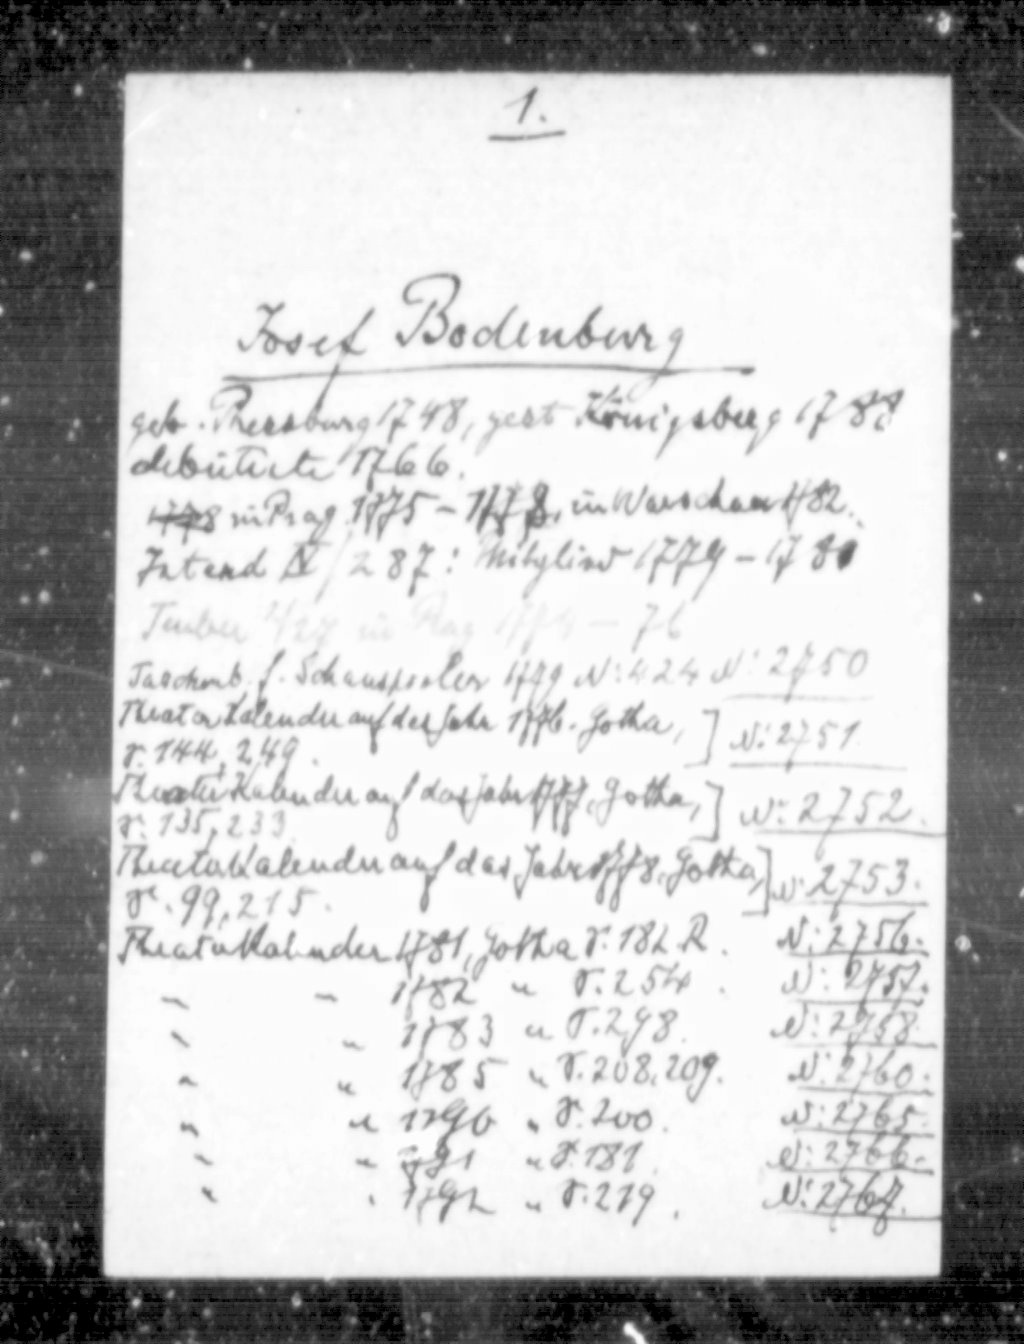 1.
Josef Bodenburg
geb. Pressburg 1748, gest. Königsberg 178
debütirte 1766.
1778 in Prag 1775 - 1778, in Warschau 1782.
Intend IV/287: Mitglied 1779 - 178
Teuber in Prag 76
Taschenb. f. Schauspieler 1779 N: 424 N: 2750
Theater Kalender auf das Jahr 1776. Gotha, ] N: 2751
S. 144, 249.
Theater Kalender auf das Jahr 1777, Gotha, ] N: 2752.
S. 135, 233
Theater Kalender auf das Jahr 1778, Gotha, ] N: 2753.
S. 99, 215.
Theater Kalender 1781, Gotha S. 182 R. N: 2756.
" " 1782 " S. 254. N: 2757.
" " 1783 " S. 298. N: 2758
" " 1785 " S. 208, 209. N: 2760.
" " 1790 " S. 200. N: 2765.
" " 1791 " S. 181. N: 2766.
" " 1792 " S. 279. N: 2767.